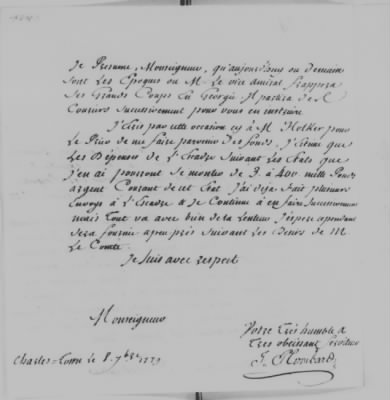 Je Presume, Monseigneur, qu'aujourd'huy ou Demain
sont Les Epoques ou M. Le vice amiral frappera
Ses Grands Coups En Georgie. Il partira de
Couriers Successivement pour vous en instruire
J'Ecris par cette occasion cy à M. Holker pour
Le Prier de me faire parvenir des fonds. J'estime que
Les Dépenses de L'Escadre Suivant Les Etats que
j'en ai pourront Se monter de 3. à 400 mille Pieds
argent Courant de cet Etat. J'ai deja fait plusieurs
Envoys à L'Escadre & Je Continue à en faire Successivement
mais Tout va avec bien de la Lenteur. J'espere cependant
Sera fournie a peu près Suivant Les Desirs de M
Le Comte.
Je Suis avec respect
Monseigneur
Votre très humble &
Très obeissant Serviteur
Plombard
Charles-Town le 8. 7bre 1779